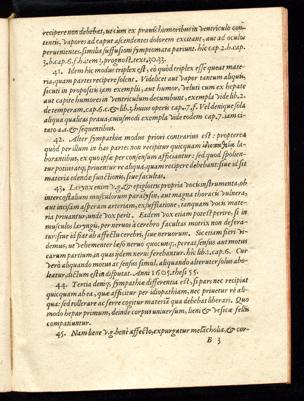 recipere non debebat, ut cum ex pravis humoribus in ventriculo contentis, vapores ad caput ascendentes dolorem excitant, aut ad oculos
pervenientes, similia suffusioni symptomata pariunt. hic cap. 2. h. cap.
3. h. cap. 6. f. h.
41. Idem hic modus triplex est, eò quòd triplex esse queat materia, quam partes recipere solent. Videlicet aut vapor tantum aliquis,
sicuti in proposito jam exempli, aut humor, veluti cum ex hepate
aut capite humores in ventriculum decumbunt, exempla vide lib. 2.
de temperam. cap. 6. & lib. 3. hujus operis cap. 7. f. Vel denique sola
aliqua qualitas prava, cujusmodi exempla vide eodem cap. 7. jam citato & sequentibus.
42. Alter sympathiæ modus priori contrarius est: propterea
quòd per illum in hac partes non recipitur quicquam laborantibus, ex quo ipsæ per consensum afficiantur: sed quod solebant
potius atq; privantur re aliqua, quam recipere debebant: sive id sit
materia edendæ functionis, sive facultas.
43. Larynx enim v. g. & epiglottis propria vocis instrumenta, ob
intercostalium musculorum paralysin, aut magna thoracis vulnera,
aut incisam asperam arteriam, exsufflatione, tanquam vocis materia privantur, unde vox perit. Eadem vox etiam potest perire, si in
musculos laryngis, per nervos à cerebro facultas motrix non deferatur: sive id fiat ob affectum cerebri, sive nervorum. Sic etiam fieri videmus, ut vehementer læso nervo quocunq;, pereat sensus aut motus
earum partium, in quas ijdem nervi ferebantur. hic lib. 1. cap. 6. Cur
verò aliquando motus ac sensus simul, aliquando alteruter solus aboleatur, dictum est in disputat. Anni 1605. thes. 55.
44. Tertia deniq; sympathiæ differentia est, si pars nec recipiat
quicquam ab ea, quæ afficitur per idiopathiam, nec privetur re aliqua: sed tollerare ac ferre cogitur materiã qua debebat liberari. Quo
modo hepar primum, deinde corpus universum, lieni & vesicæ fellis
compatiuntur.
45. Nam liene v. g. benè affecto, expurgatur melãcholia, & cor-
B 3